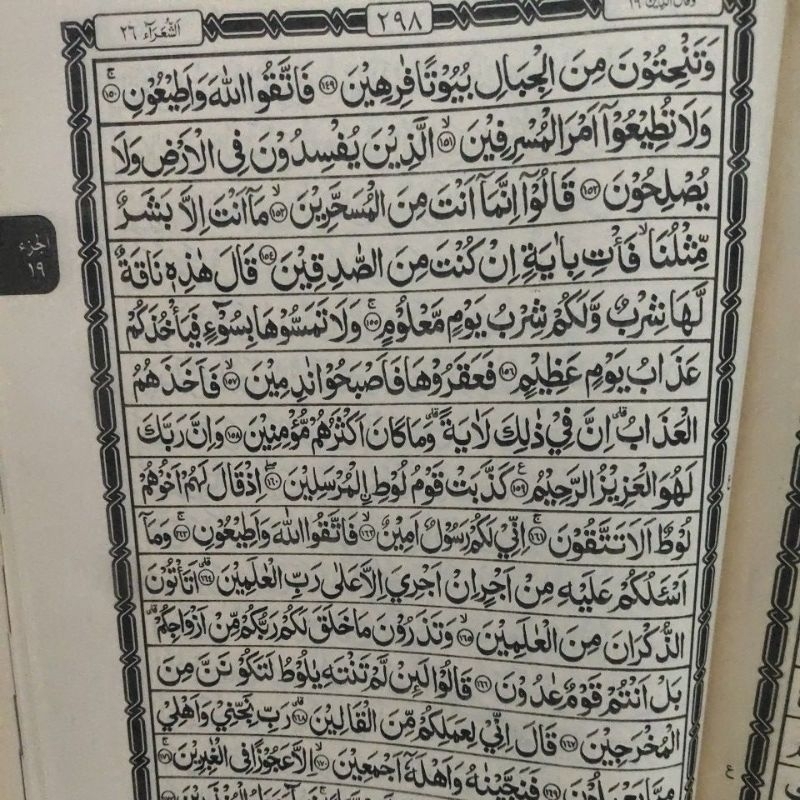 الشعراء ٢٦
٢٩٨
وقال الذين ١٩
وَتَنْحِتُوْنَ مِنَ الْجِبَالِ بُيُوْتًا فٰرِهِيْنَ ۝١٤٩ فَاتَّقُوا اللّٰهَ وَاَطِيْعُوْنِ ۝١٥٠ ج
وَلَا تُطِيْعُوْٓا اَمْرَ الْمُسْرِفِيْنَ ۝١٥١ۙ الَّذِيْنَ يُفْسِدُوْنَ فِى الْاَرْضِ وَلَا
يُصْلِحُوْنَ ۝١٥٢ قَالُوْٓا اِنَّمَآ اَنْتَ مِنَ الْمُسَحَّرِيْنَ ۝١٥٣ۙ مَآ اَنْتَ اِلَّا بَشَرٌ
مِّثْلُنَاۙ فَأْتِ بِاٰيَةٍ اِنْ كُنْتَ مِنَ الصّٰدِقِيْنَ ۝١٥٤ قَالَ هٰذِهٖ نَاقَةٌ
الجزء
١٩
لَّهَا شِرْبٌ وَّلَكُمْ شِرْبُ يَوْمٍ مَّعْلُوْمٍ ۝١٥٥ۚ وَلَا تَمَسُّوْهَا بِسُوْٓءٍ فَيَأْخُذَكُمْ
عَذَابُ يَوْمٍ عَظِيْمٍ ۝١٥٦ فَعَقَرُوْهَا فَاَصْبَحُوْا نٰدِمِيْنَ ۝١٥٧ۙ فَاَخَذَهُمُ
الْعَذَابُۗ اِنَّ فِيْ ذٰلِكَ لَاٰيَةًۗ وَمَا كَانَ اَكْثَرُهُمْ مُّؤْمِنِيْنَ ۝١٥٨ وَاِنَّ رَبَّكَ
لَهُوَ الْعَزِيْزُ الرَّحِيْمُ ۝١٥٩ ع كَذَّبَتْ قَوْمُ لُوْطِ ِۨالْمُرْسَلِيْنَ ۝١٦٠ۖ اِذْ قَالَ لَهُمْ اَخُوْهُمْ
لُوْطٌ اَلَا تَتَّقُوْنَ ۝١٦١ۚ اِنِّيْ لَكُمْ رَسُوْلٌ اَمِيْنٌ ۝١٦٢ۙ فَاتَّقُوا اللّٰهَ وَاَطِيْعُوْنِ ۝١٦٣ۚ وَمَآ
اَسْـَٔلُكُمْ عَلَيْهِ مِنْ اَجْرٍ اِنْ اَجْرِيَ اِلَّا عَلٰى رَبِّ الْعٰلَمِيْنَ ۝١٦٤ۗ اَتَأْتُوْنَ
الذُّكْرَانَ مِنَ الْعٰلَمِيْنَ ۝١٦٥ۙ وَتَذَرُوْنَ مَا خَلَقَ لَكُمْ رَبُّكُمْ مِّنْ اَزْوَاجِكُمْۗ
بَلْ اَنْتُمْ قَوْمٌ عٰدُوْنَ ۝١٦٦ قَالُوْا لَىِٕنْ لَّمْ تَنْتَهِ يٰلُوْطُ لَتَكُوْنَنَّ مِنَ
الْمُخْرَجِيْنَ ۝١٦٧ قَالَ اِنِّيْ لِعَمَلِكُمْ مِّنَ الْقَالِيْنَ ۝١٦٨ۗ رَبِّ نَجِّنِيْ وَاَهْلِيْ
مِمَّا يَعْمَلُوْنَ ۝١٦٩ فَنَجَّيْنٰهُ وَاَهْلَهٗٓ اَجْمَعِيْنَ ۝١٧٠ۙ اِلَّا عَجُوْزًا فِى الْغٰبِرِيْنَ ۝١٧١ۚ